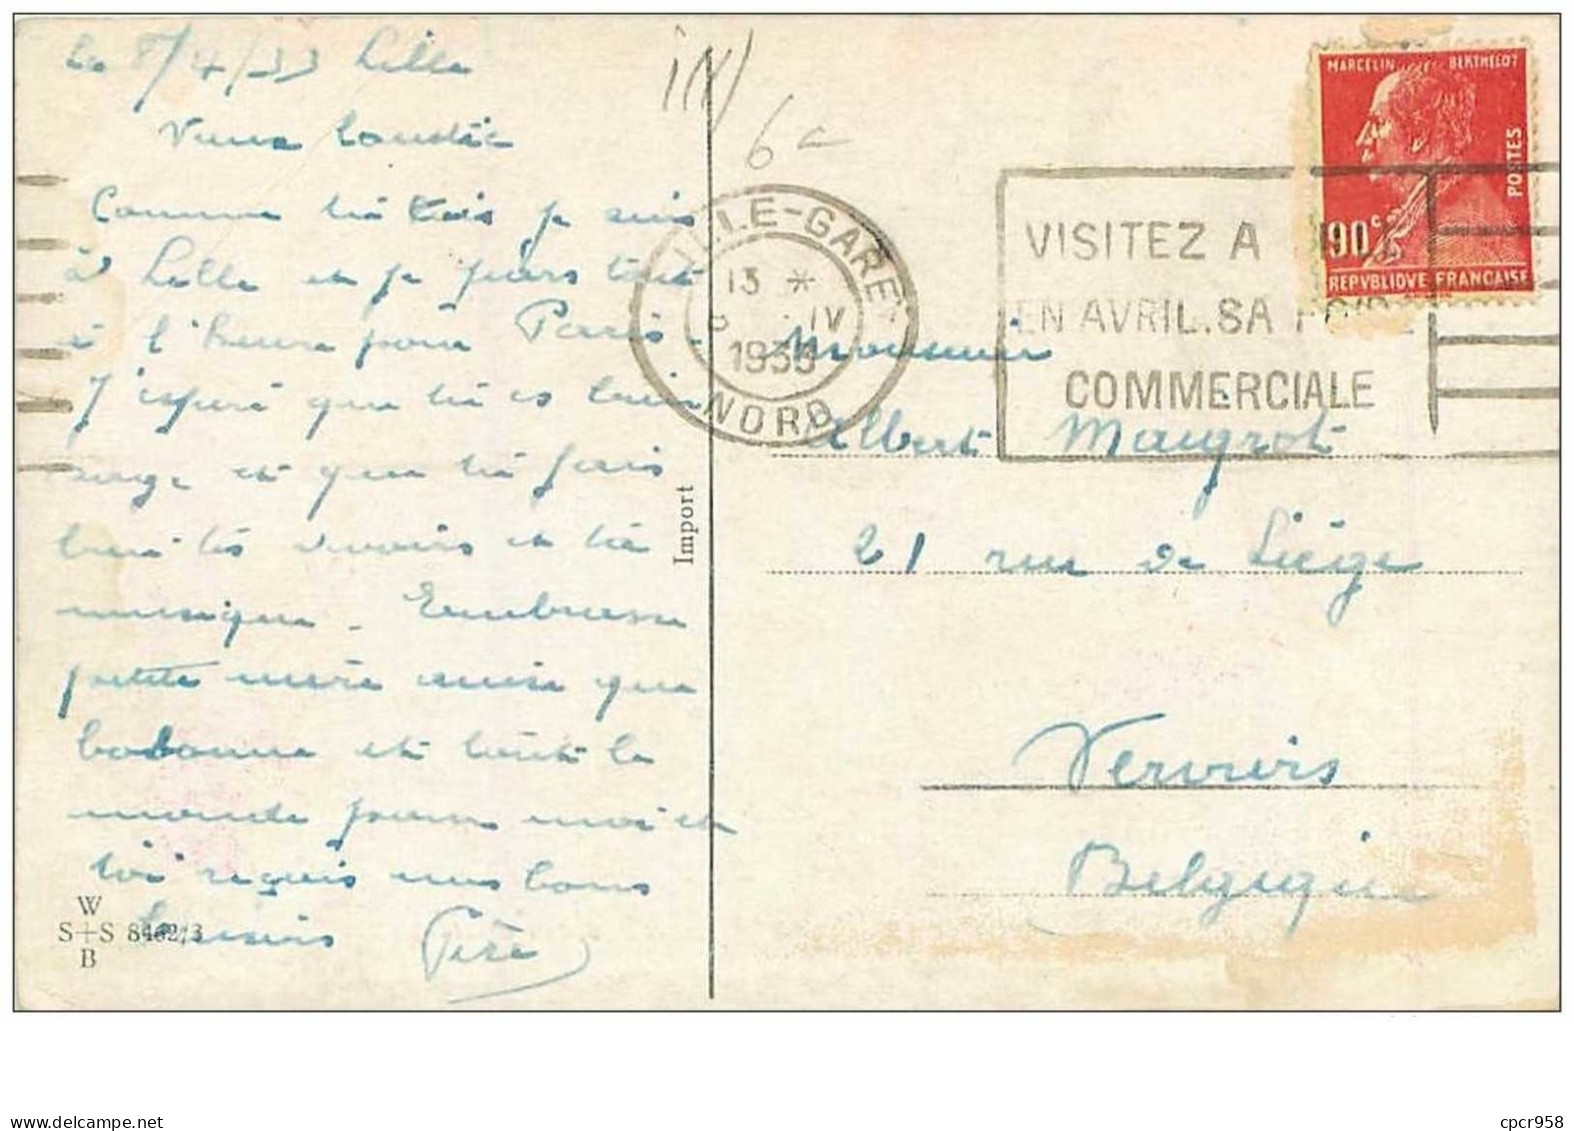 Le 8/4/33 Lille
Comme tu vois je suis
à Lille et je pars tout
à l'heure pour Paris.
J'espère que tu es bien
sage et que tu fais
bien tes devoirs et ta
musique. Embrasse
petite mère ainsi que
bobonne et tout le
monde pour moi et
toi reçois mes bons
baisers Père
W
S+S 8462/3
B
Import
6c
LILLE-GARE
13 *
IV
1933
NORD
VISITEZ A
EN AVRIL. SA
COMMERCIALE
MARCELIN BERTHELOT
POSTES
90c
REPVBLIQVE FRANCAISE
Monsieur
Albert Maigrot
21 rue de Liège
Verviers
Belgique
cpcr958